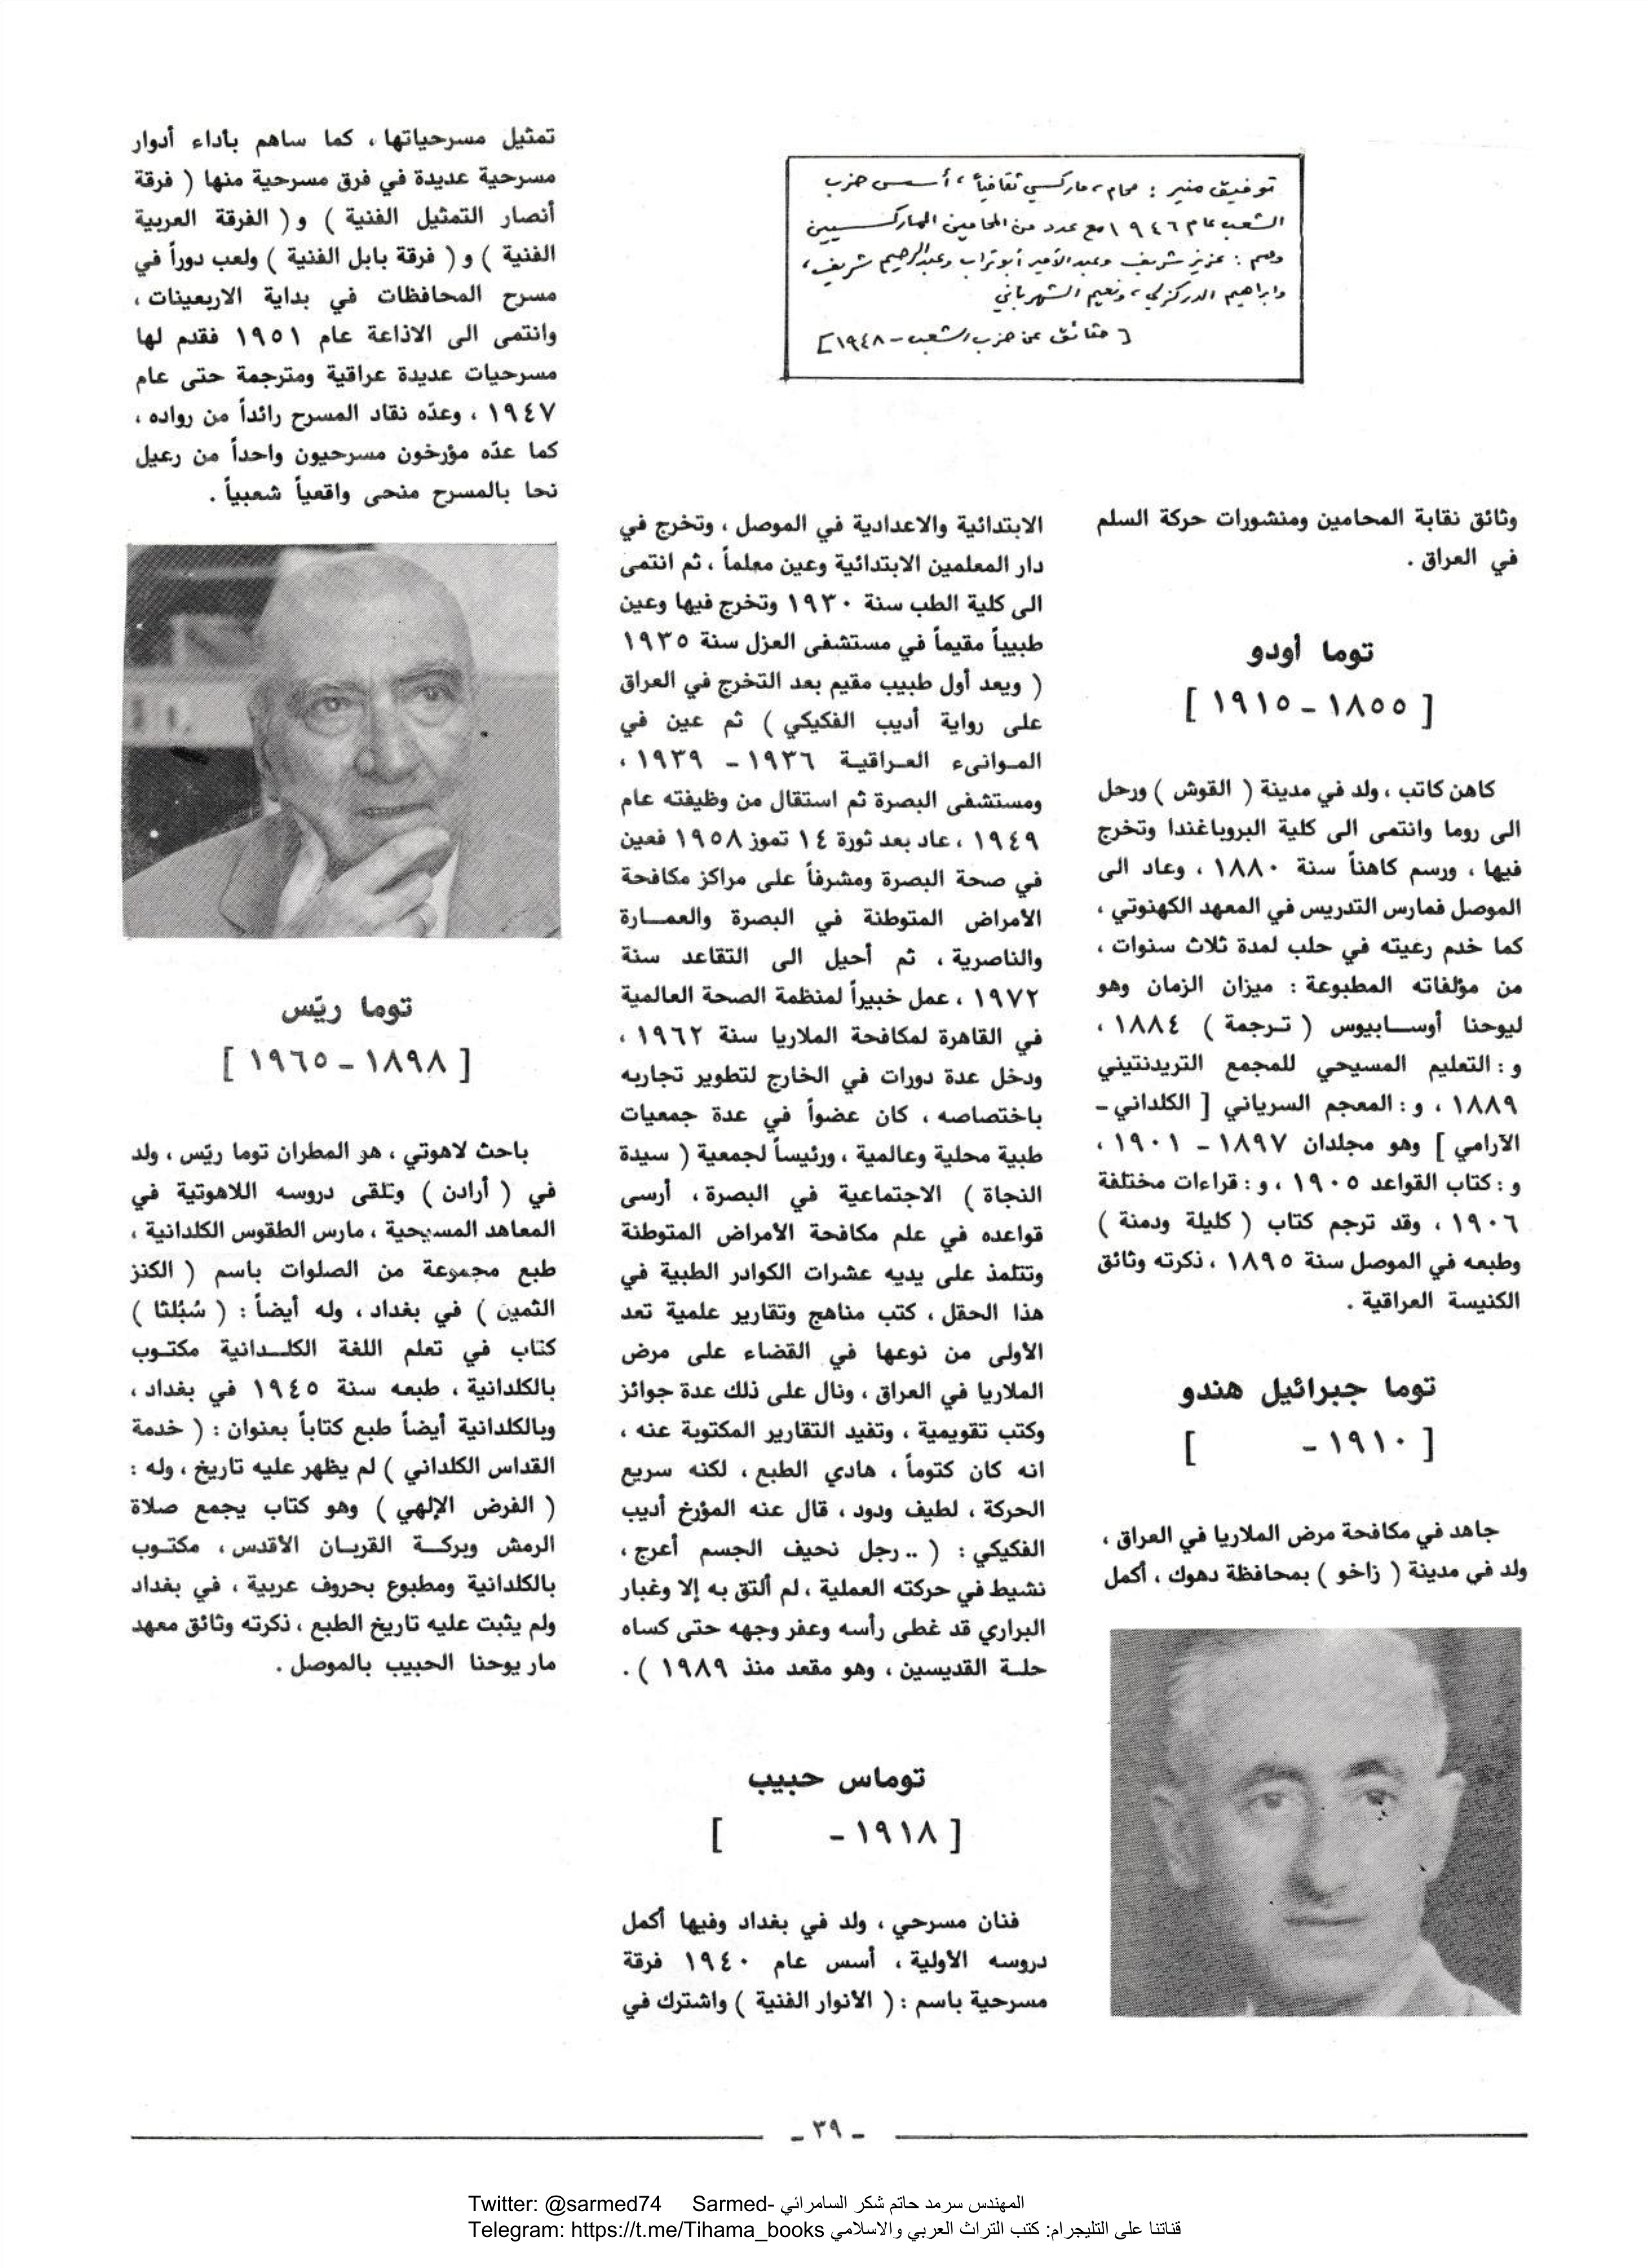 توفيق منير : محام، ماركسي ثقافياً، أسس حزب
الشعب عام ١٩٤٦ مع عدد من المحامين الماركسيين
وهم : عزيز شريف وعبد الأمير أبو تراب وعبد الرحيم شريف،
وابراهيم الدركزلي، ونعيم الشهرباني
[ حقائق عن حزب الشعب - ١٩٤٨]
وثائق نقابة المحامين ومنشورات حركة السلم
في العراق .
توما أودو
[ ١٨٥٥ - ١٩١٥ ]
كاهن كاتب ، ولد في مدينة ( القوش ) ورحل
الى روما وانتمى الى كلية البروباغندا وتخرج
فيها ، ورسم كاهناً سنة ١٨٨٠ ، وعاد الى
الموصل فمارس التدريس في المعهد الكهنوتي ،
كما خدم رعيته في حلب لمدة ثلاث سنوات ،
من مؤلفاته المطبوعة : ميزان الزمان وهو
ليوحنا أوســابيوس ( تـرجمة ) ١٨٨٤ ،
و : التعليم المسيحي للمجمع التريدنتيني
١٨٨٩ ، و : المعجم السرياني [ الكلداني -
الآرامي ] وهو مجلدان ١٨٩٧ - ١٩٠١ ،
و : كتاب القواعد ١٩٠٥ ، و : قراءات مختلفة
١٩٠٦ ، وقد ترجم كتاب ( كليلة ودمنة )
وطبعه في الموصل سنة ١٨٩٥ ، ذكرته وثائق
الكنيسة العراقية .
توما جبرائيل هندو
[ ١٩١٠ - ]
جاهد في مكافحة مرض الملاريا في العراق ،
ولد في مدينة ( زاخو ) بمحافظة دهوك ، أكمل
الابتدائية والاعدادية في الموصل ، وتخرج في
دار المعلمين الابتدائية وعين معلماً ، ثم انتمى
الى كلية الطب سنة ١٩٣٠ وتخرج فيها وعين
طبيباً مقيماً في مستشفى العزل سنة ١٩٣٥
( ويعد أول طبيب مقيم بعد التخرج في العراق
على رواية أديب الفكيكي ) ثم عين في
المـوانىء العـراقيـة ١٩٣٦ - ١٩٣٩ ،
ومستشفى البصرة ثم استقال من وظيفته عام
١٩٤٩ ، عاد بعد ثورة ١٤ تموز ١٩٥٨ فعين
في صحة البصرة ومشرفاً على مراكز مكافحة
الأمراض المتوطنة في البصرة والعمــارة
والناصرية ، ثم أحيل الى التقاعد سنة
١٩٧٢ ، عمل خبيراً لمنظمة الصحة العالمية
في القاهرة لمكافحة الملاريا سنة ١٩٦٢ ،
ودخل عدة دورات في الخارج لتطوير تجاربه
باختصاصه ، كان عضواً في عدة جمعيات
طبية محلية وعالمية ، ورئيساً لجمعية ( سيدة
النجاة ) الاجتماعية في البصرة ، أرسى
قواعده في علم مكافحة الأمراض المتوطنة
وتتلمذ على يديه عشرات الكوادر الطبية في
هذا الحقل ، كتب مناهج وتقارير علمية تعد
الأولى من نوعها في القضاء على مرض
الملاريا في العراق ، ونال على ذلك عدة جوائز
وكتب تقويمية ، وتفيد التقارير المكتوبة عنه ،
انه كان كتوماً ، هادي الطبع ، لكنه سريع
الحركة ، لطيف ودود ، قال عنه المؤرخ أديب
الفكيكي : ( .. رجل نحيف الجسم أعرج ،
نشيط في حركته العملية ، لم ألتق به إلا وغبار
البراري قد غطى رأسه وعفر وجهه حتى كساه
حلـة القديسين ، وهو مقعد منذ ١٩٨٩ ) .
توماس حبيب
[ ١٩١٨ - ]
فنان مسرحي ، ولد في بغداد وفيها أكمل
دروسه الأولية ، أسس عام ١٩٤٠ فرقة
مسرحية باسم : ( الأنوار الفنية ) واشترك في
تمثيل مسرحياتها ، كما ساهم بأداء أدوار
مسرحية عديدة في فرق مسرحية منها ( فرقة
أنصار التمثيل الفنية ) و ( الفرقة العربية
الفنية ) و ( فرقة بابل الفنية ) ولعب دوراً في
مسرح المحافظات في بداية الاربعينات ،
وانتمى الى الاذاعة عام ١٩٥١ فقدم لها
مسرحيات عديدة عراقية ومترجمة حتى عام
١٩٤٧ ، وعدّه نقاد المسرح رائداً من رواده ،
كما عدّه مؤرخون مسرحيون واحداً من رعيل
نحا بالمسرح منحى واقعياً شعبياً .
توما ريّس
[ ١٨٩٨ - ١٩٦٥ ]
باحث لاهوتي ، هو المطران توما ريّس ، ولد
في ( أرادن ) وتلقى دروسه اللاهوتية في
المعاهد المسيحية ، مارس الطقوس الكلدانية ،
طبع مجموعة من الصلوات باسم ( الكنز
الثمين ) في بغداد ، وله أيضاً : ( شبُلثا )
كتاب في تعلم اللغة الكلــدانية مكتـوب
بالكلدانية ، طبعه سنة ١٩٤٥ في بغداد ،
وبالكلدانية أيضاً طبع كتاباً بعنوان : ( خدمة
القداس الكلداني ) لم يظهر عليه تاريخ ، وله :
( الفرض الإلهي ) وهو كتاب يجمع صلاة
الرمش وبركـــة القربـان الأقدس ، مكتـوب
بالكلدانية ومطبوع بحروف عربية ، في بغداد
ولم يثبت عليه تاريخ الطبع ، ذكرته وثائق معهد
مار يوحنا الحبيب بالموصل .
- ٣٩ -
Twitter: @sarmed74 Sarmed- المهندس سرمد حاتم شكر السامرائي
Telegram: https://t.me/Tihama_books قناتنا على التليجرام: كتب التراث العربي والاسلامي